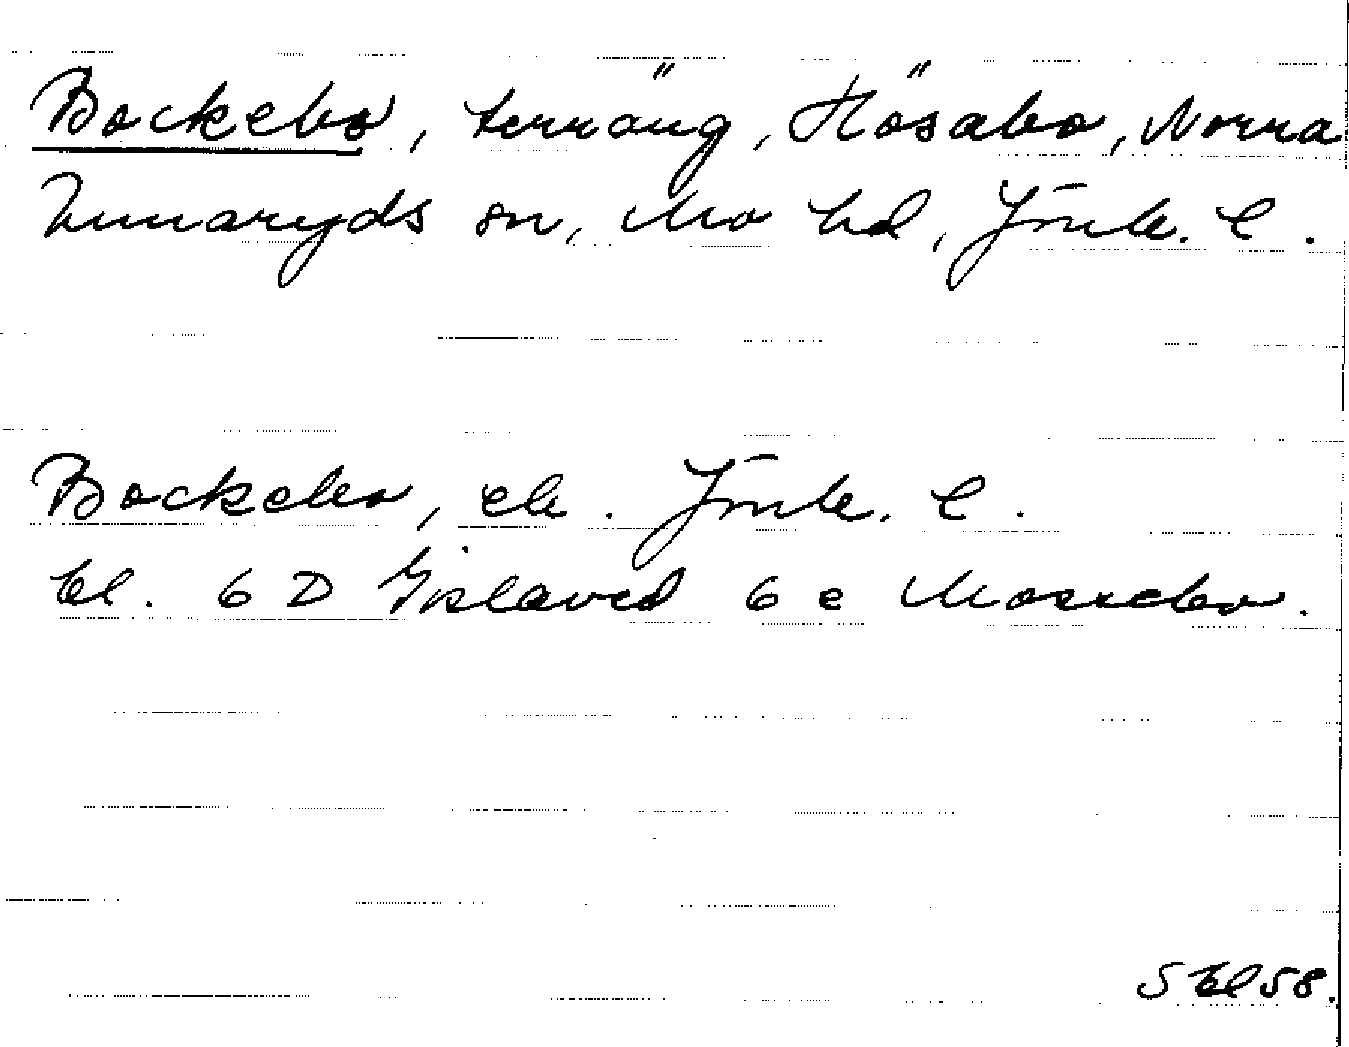 Bockebo, terräng, Hösabo, Norra
Unnaryds sn, Mo hd, Jönk. l.
Bockebo, ek. Jönk. l.
bl. 6 D Gislaved 6 e Mossebo.
S bl 58.